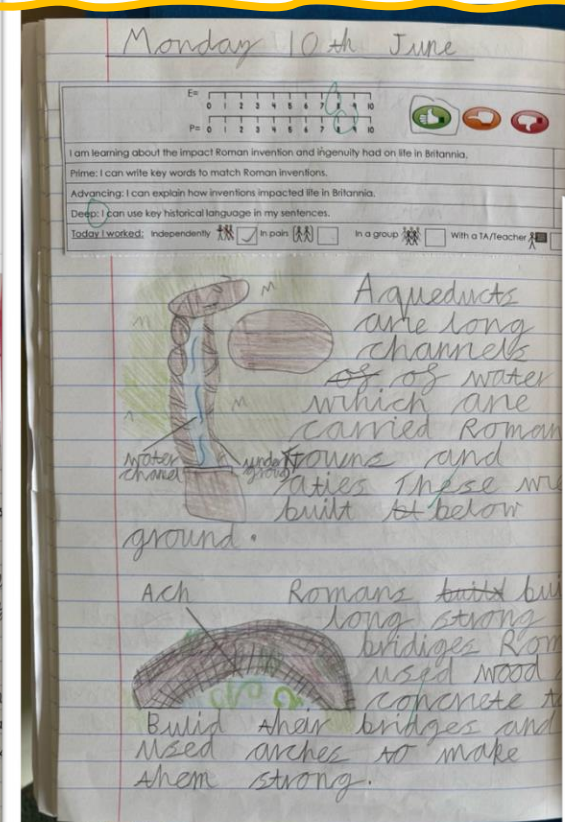 Monday 10th June
E= 0 1 2 3 4 5 6 7 8 9 10
P= 0 1 2 3 4 5 6 7 8 9 10
I am learning about the impact Roman invention and ingenuity had on life in Britannia.
Prime: I can write key words to match Roman inventions.
Advancing: I can explain how inventions impacted life in Britannia.
Deep: I can use key historical language in my sentences.
Today I worked: Independently In pairs In a group With a TA/Teacher
Aqueducts
are long
channels
of of water
which are
carried Roman
towns and
aties These we
built below
ground.
water
chanal
under
ground
Ach
Romans bui
long strong
bridiges Rom
used wood
concrete
Bulid their bridges and
used arches to make
them strong.